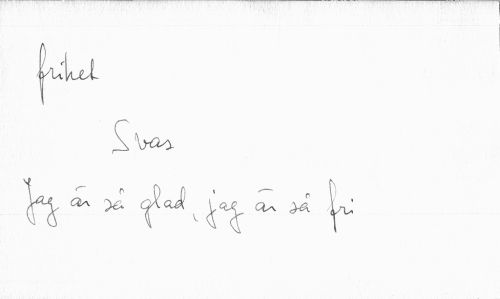 frihet
Svas
Jag är så glad, jag är så fri